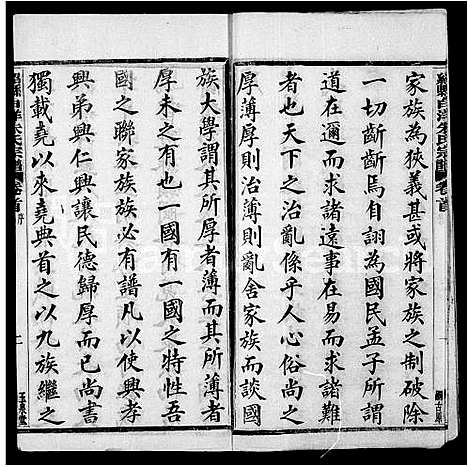 紹縣白洋朱氏宗譜 卷首
家族為狹義甚或將家族之制破除
一切齗齗焉自詡為國民孟子所謂
道在邇而求諸遠事在易而求諸難
者也天下之治亂係乎人心俗尚之
厚薄厚則治薄則亂舍家族而談國
族大學謂其所厚者薄而其所薄者
厚未之有也一國有一國之特性吾
國之聯家族族必有譜凡以使興孝
興弟興仁興讓民德歸厚而已尚書
獨載堯以來堯典首之以九族繼之
紹縣白洋朱氏宗譜 卷首
玉泉堂